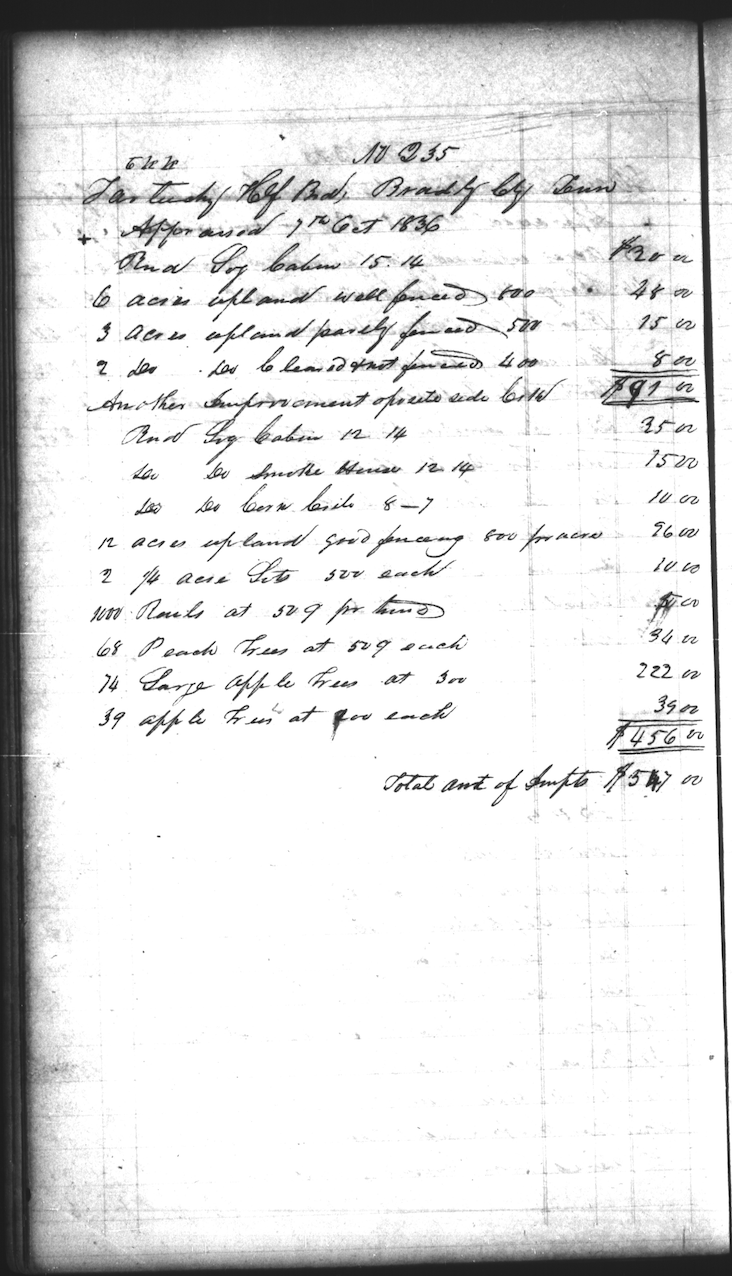 No 235
Hlf Brd, Bradly Cty Tenn
+ Appraised 7th Oct 1836
Rnd Log Cabin 15. 14 $20 00
6 acres upland well fenced 800 48 00
3 acres upland parely fenced 500 15 00
2 Do Do Cleared & not fenced 400 8 00
$91 00
Another Improvement oposite side
Rnd Log Cabin 12 14 35 00
Do Do Smoke House 12 14 15 00
Do Do Corn Crib 8-7 10.00
12 acres upland good fencing 800 pr acre 96 00
2 1/4 acre Lots 500 each 10 00
1000 Rails at 50 ¢ pr hund 5 00
68 Peach Trees at 50 ¢ each 34 00
74 Large apple Trees at 300 222 00
39 apple Trees at 100 each 39 00
$456 00
Total amt of Impts $547 00